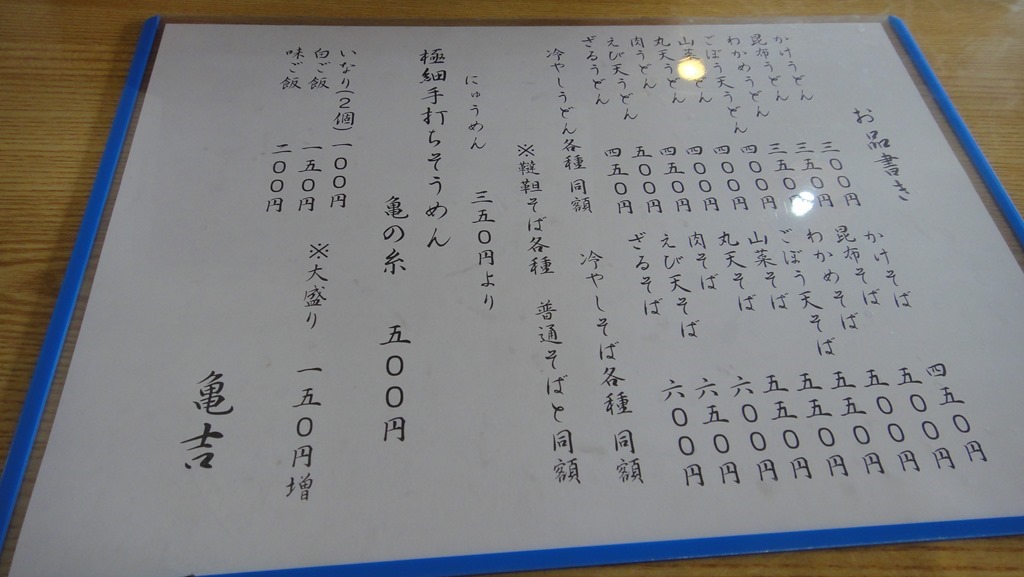 お品書き
かけうどん 三〇〇円
昆布うどん 三五〇円
わかめうどん 三五〇円
ごぼう天うどん 四〇〇円
山菜うどん 四〇〇円
丸天うどん 四〇〇円
肉うどん 四五〇円
えび天うどん 五〇〇円
ざるうどん 四五〇円
冷やしうどん各種 同額
かけそば 四五〇円
昆布そば 五〇〇円
わかめそば 五〇〇円
ごぼう天そば 五五〇円
山菜そば 五五〇円
丸天そば 五五〇円
肉そば 六〇〇円
えび天そば 六五〇円
ざるそば 六〇〇円
冷やしそば各種 同額
※韃靼そば各種 普通そばと同額
にゅうめん 三五〇円より
極細手打ちそうめん
亀の糸 五〇〇円
いなり(2個) 一〇〇円
白ご飯 一五〇円
味ご飯 二〇〇円
※大盛り 一五〇円増
亀吉